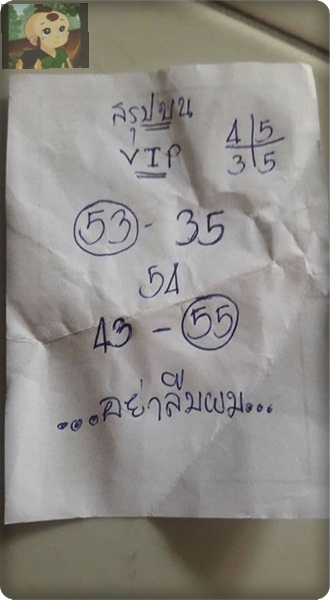 สรุปบน
VIP
4 5
3 5
53 - 35
54
43 - 55
...อย่าลืมผม...